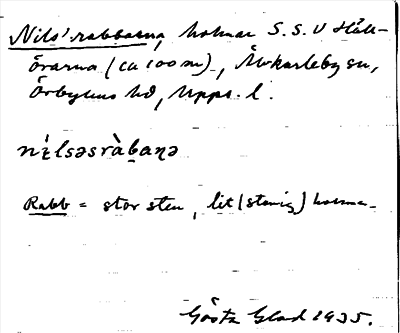 Nils'rabbarna, holmar S.S.V Häll-
örarna (ca 100 m), Älvkarleby sn,
Örbyhus hd, Upps. l.
nìlsəsràbaṇə
Rabb = stor sten, lit (stenig) holme.
Gösta Glad 1935.